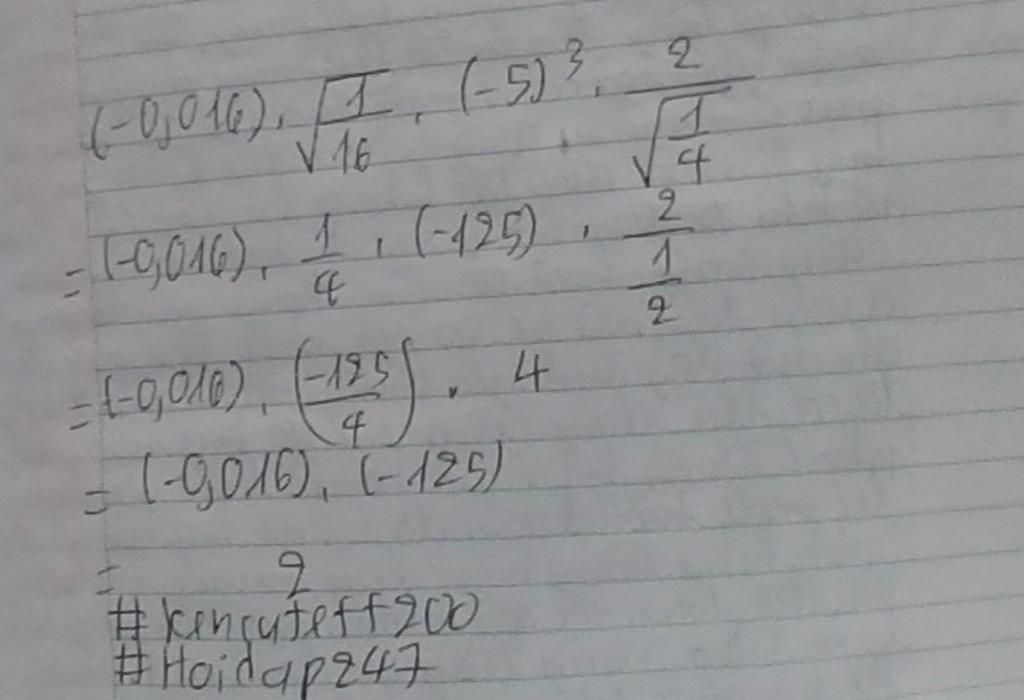 (-0,016) . √(1/16) . (-5)³ . 2/√(1/4)
= (-0,016) . 1/4 . (-125) . 2/(1/2)
= (-0,016) . (-125/4) . 4
= (-0,016) . (-125)
= 2
#kencuteff200
#Hoidap247